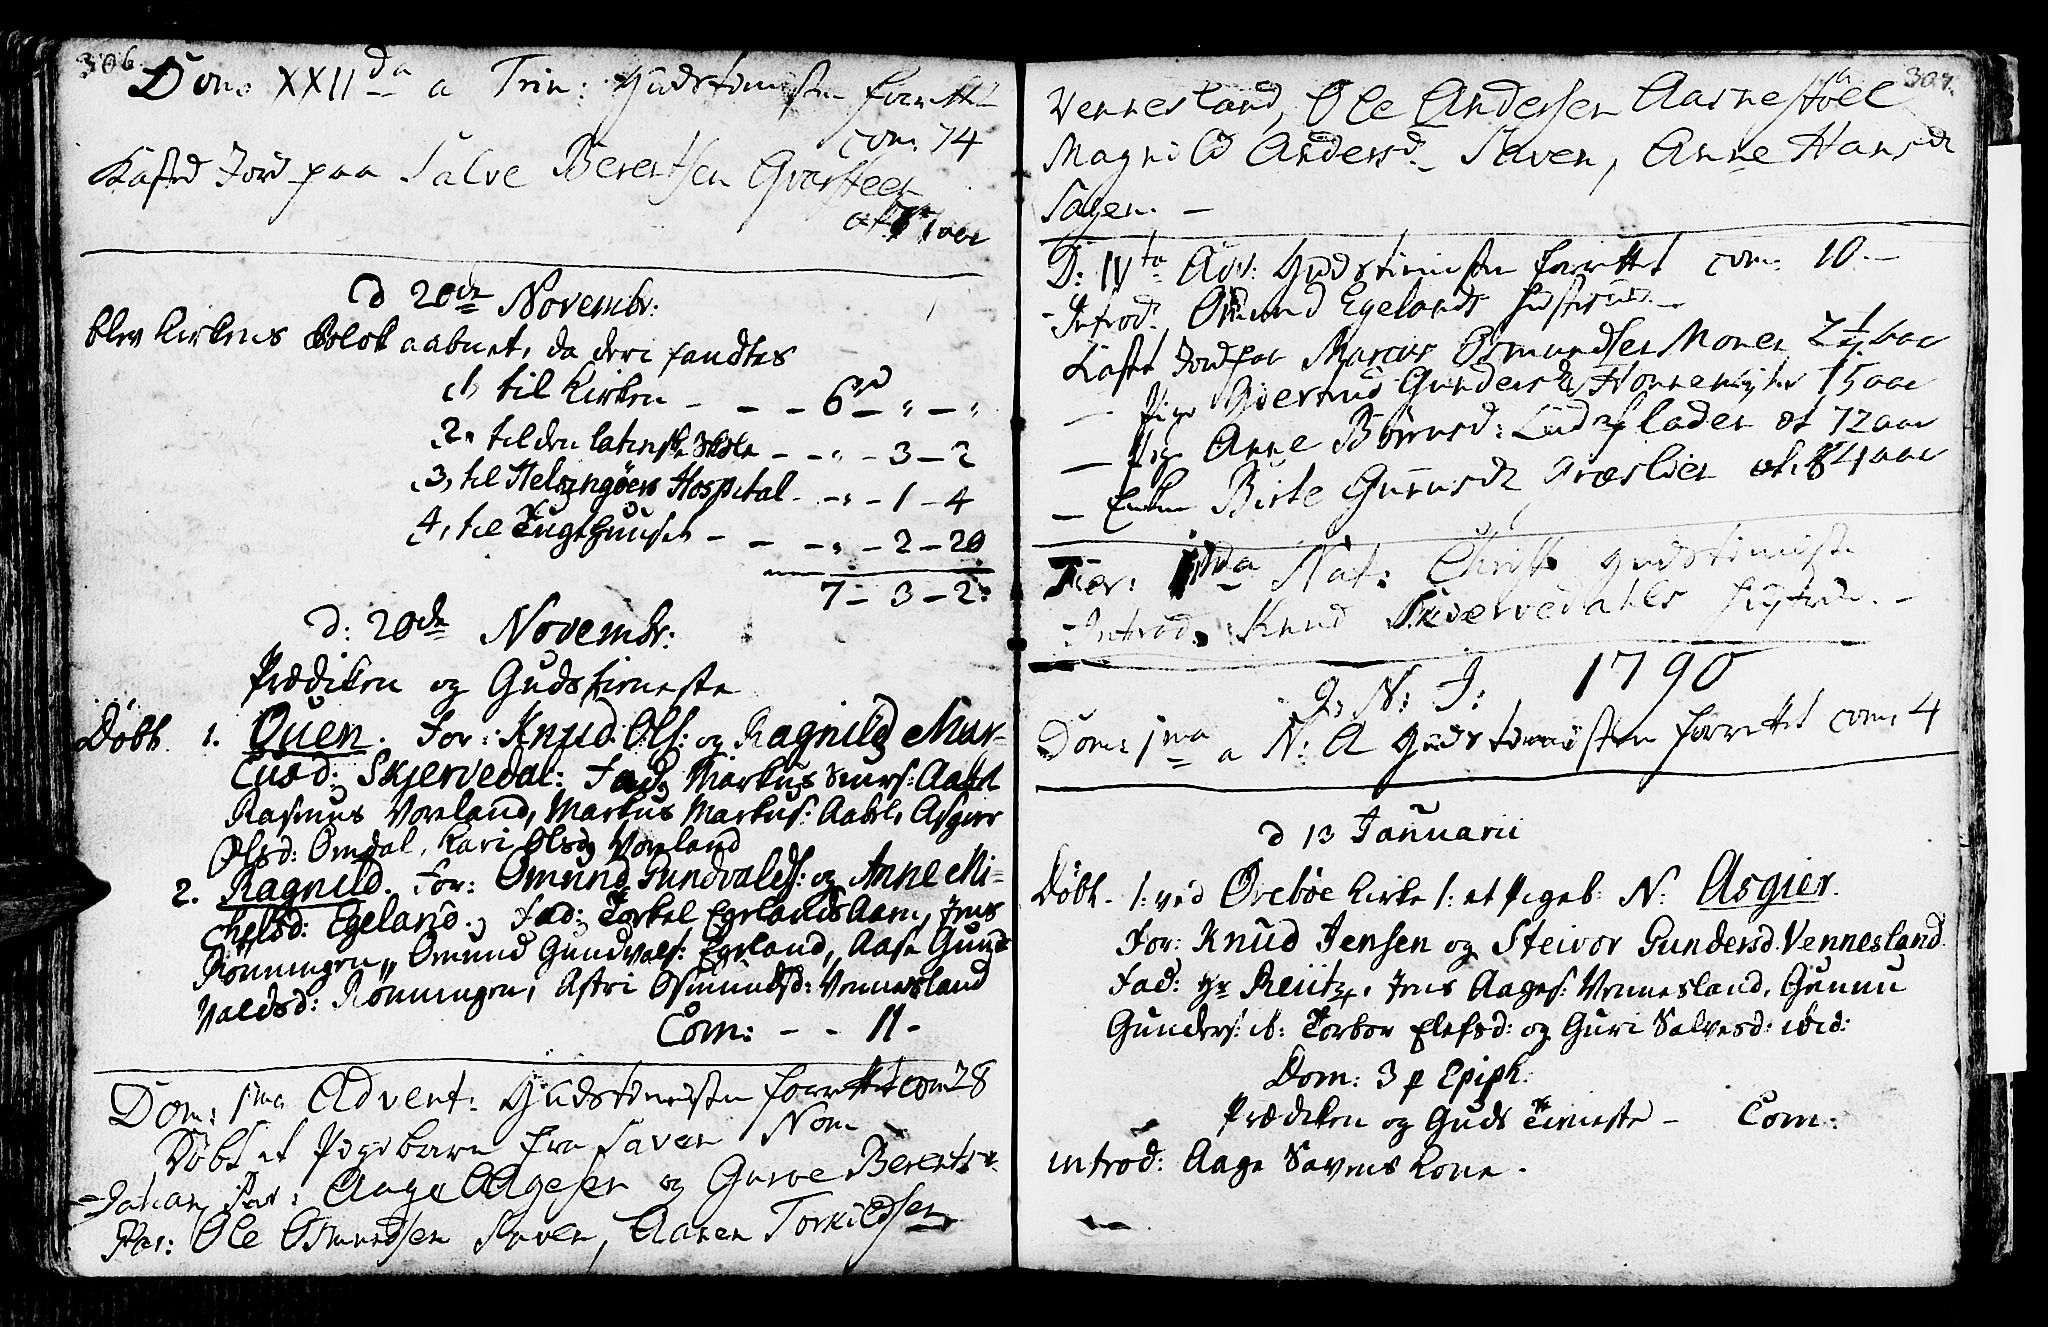 306.
Dom. XXII da a Trin: Gudstienisten forrettet
com. 74
Kasted Jord paa Salve Berentsen Qvarsteen
aar
d 20de Novembr:
blev Kirkens Blok aabnet, da deri fandtes
1, til Kirken - - - 6 rd - " - "
2, til den latinske Skole - - " - 3 - 2
3, til Helsingøers Hospital - - " - 1 - 4
4, til Tugthuuset - - - " - 2 - 20
7 - 3 - 2:
d: 20de Novembr:
Prædiken og Guds tieneste
Døbt 1. Ouen. For: Knud Ols: og Ragnild Mar-
cusd: Skjervedal: Fad: Markus Aabel
Rasmus Voreland, Markus Markus: Aabel, Asgier
Olsd: Omdal, Kari Olsd: Voreland
2. Ragnild. For: Omund Gundvalds: og Anne Mi-
chelsd: Egeland. Fad: Torkel Egelands Aam, Jens
Rønningen, Omund Gundvals: Egeland, Aase Gund-
valdsd: Rønningen, Astri Osmundsd: Vennesland
Com: - - 11 -
Dom: 1ma Advent: Gudstienisten forrettet com 28
Døbt et Pigebarn fra Saven Nom
Johan, Par: Aage Aagesen og Guroe Berentsd.
Far: Ole Osmundsen Saven, Aanen Torkildsen
307.
Vennesland, Ole Andersen Aarnestøel
Magnild Andersd. Saven, Anne Hansd
Sagen. -
D: IV ta Adv: Gudstienisten forrettet com: 10. -
- Introd. Omund Egelands Hustrue. -
Kastet Jord paa Marcus Osmundsen Monen 2 1/2 aar
- Pige Giertrud Gundersd. 15 aar
- Pige Anne Biørnsd: at 72 aar
- Enken Birte Gunnusd. Træslien at. 84 aar
Fer: da Nat: Christi Gudstieniste
- Introd. Knud Skiervedahls Hustrue. -
J. N: J: 1790
Dom: 1ma a N: A Gudstienisten forrettet com: 4
d 13 Januarii
Døbt - /: ved Øvebøe Kirke /: et Pigeb: N. Asgier.
For: Knud Jensen og Steivor Gundersd. Vennesland.
Fad: Hr Reutz, Jens Aages: Vennesland, Gunnu
Gunders: ib: Torbor Elefsd: og Guri Salvesd: ibid:
Dom: 3 p Epiph:
Prædiken og Guds Tieneste - Com:
introd: Aage Savens Kone.